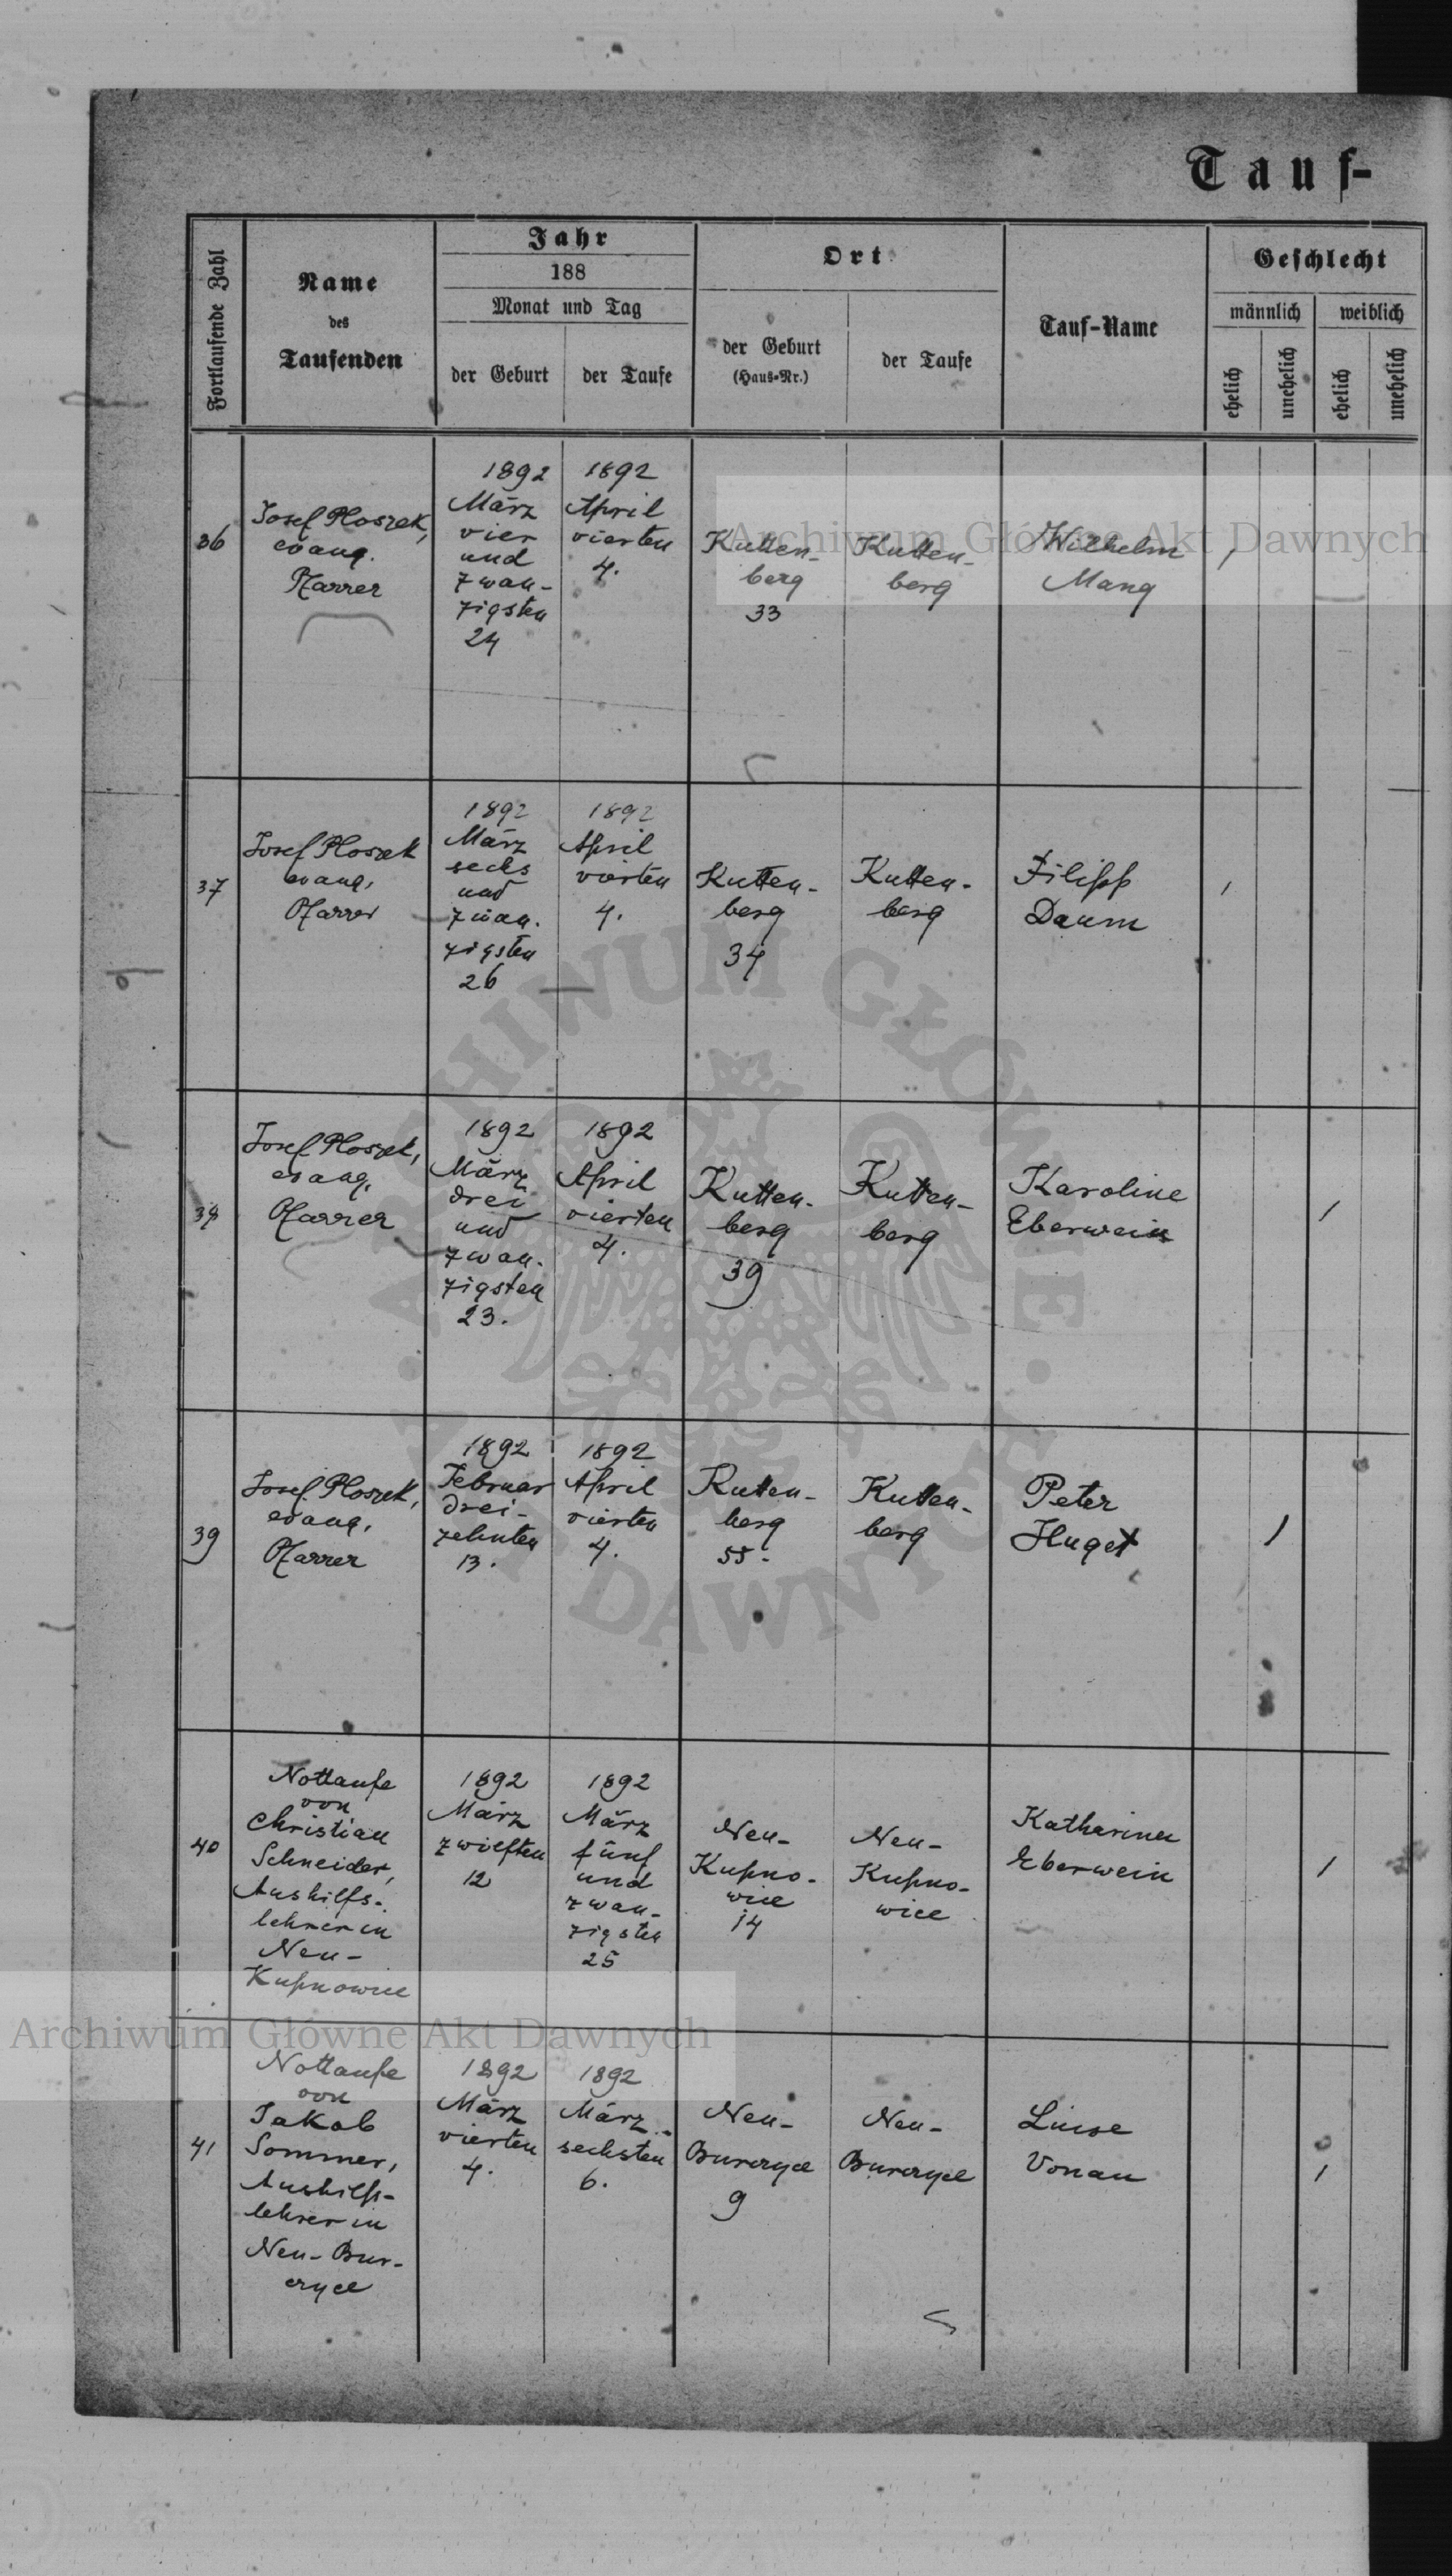 Tauf-
Fortlaufende Zahl
Name
des
Taufenden
Jahr
188
Monat und Tag
der Geburt
der Taufe
Ort
der Geburt
(Haus-Nr.)
der Taufe
Tauf-Name
Geschlecht
männlich
weiblich
ehelich
unehelich
ehelich
unehelich
36
Josef Ploszek,
evang.
Pfarrer
1892
März
vier
und
zwan-
zigsten
24
1892
April
vierten
4.
Kutten-
berg
33
Kutten-
berg
Wilhelm
Mang
37
Josef Ploszek
evang.
Pfarrer
1892
März
sechs
und
zwan-
zigsten
26
1892
April
vierten
4.
Kutten-
berg
34
Kutten-
berg
Filipp
Daum
38
Josef Ploszek,
evang.
Pfarrer
1892
März
drei
und
zwan-
zigsten
23.
1892
April
vierten
4.
Kutten-
berg
39
Kutten-
berg
Karoline
Eberwein
39
Josef Ploszek,
evang.
Pfarrer
1892
Februar
drei-
zehnten
13.
1892
April
vierten
4.
Kutten-
berg
55.
Kutten-
berg
Peter
Huget
40
Nottaufe
von
Christian
Schneider,
Aushilfs-
lehrer in
Neu-
Kupnowice
1892
März
zwölften
12
1892
März
fünf
und
zwan-
zigsten
25
Neu-
Kupno-
wice
14
Neu-
Kupno-
wice
Katharina
Eberwein
41
Nottaufe
von
Jakob
Sommer,
Aushilfs-
lehrer in
Neu-Bur-
czyce
1892
März
vierten
4.
1892
März
sechsten
6.
Neu-
Burczyce
9
Neu-
Burczyce
Luise
Vonau
Archiwum Główne Akt Dawnych
ARCHIWUM GŁÓWNE · AKT DAWNYCH ·
Archiwum Główne Akt Dawnych